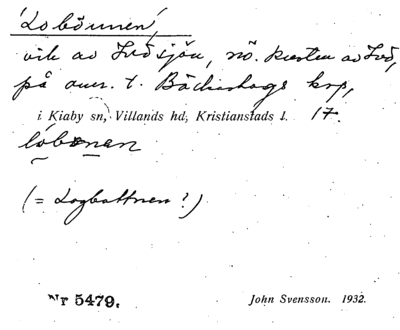 'Lobönnen',
vik av Ivösjön, nö. kusten av Ivö,
på områ. t. Bäckaskogs krp,
i Kiaby sn, Villands hd, Kristianstads l. 17.
lòbonen
(= Logbottnen?)
№ 5479.
John Svensson. 1932.